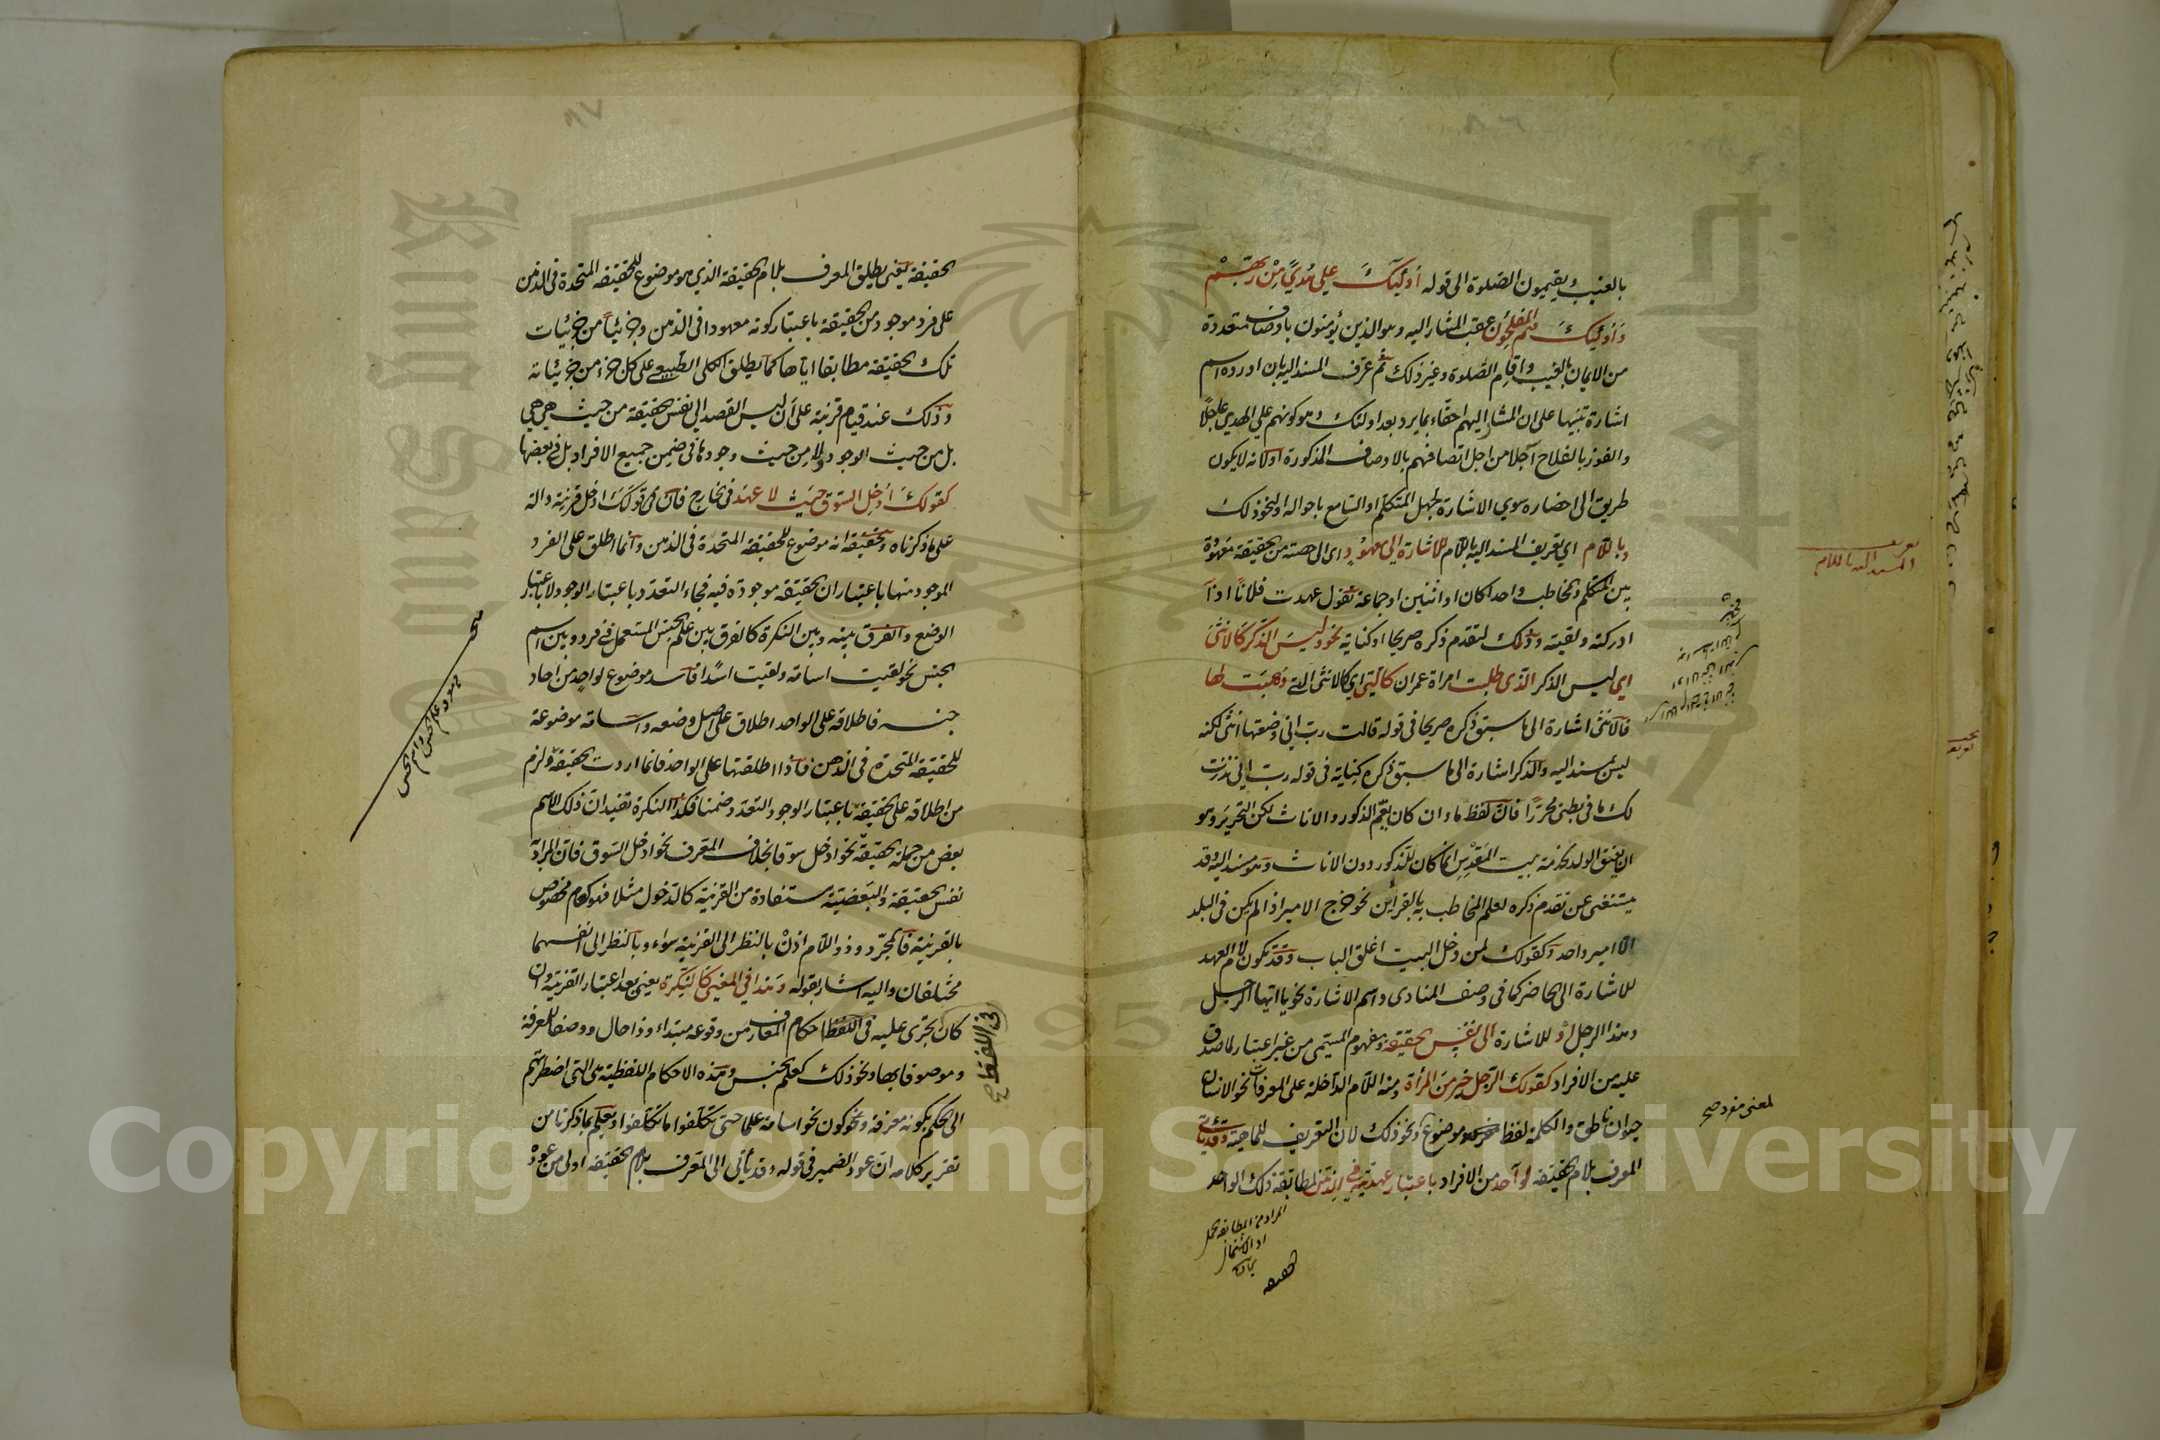 بالغيب ويقيمون الصلوة الى قوله أولئك على هدًى من ربهم
وأولئك هم المفلحون عقب المشار اليه وهو الذين يؤمنون باوصاف متعددة
من الايمان بالغيب واقام الصلوة وغير ذلك ثم عرف المسند اليه بان اورده اسم
اشارة تنبيها على ان المشار اليهم احقاء بما يرد بعد اولئك وهو كونهم على الهدى عاجلًا
والفوز بالفلاح آجلا من اجل اتصافهم بالاوصاف المذكورة او لانه لا يكون
طريق الى احضاره سوى الاشارة لجهل المتكلم او السامع باحواله او لنحو ذلك
وباللام اي تعريف المسند اليه باللام للاشارة الى معهود اي الى حصة من الحقيقة معهودة
بين المتكلم والمخاطب واحدا كان او اثنين او جماعة تقول عهدت فلانًا اذا
ادركته ولقيته وذلك لتقدم ذكره صريحا او كناية نحو وليس الذكر كالانثى
اي ليس الذكر الذي طلبت امراة عمران كالتي اي كالانثى التي وهبت لها
فالانثى اشارة الى ما سبق ذكره صريحا في قوله قالت رب اني وضعتها انثى لكنه
ليس بمسند اليه والذكر اشارة الى ما سبق ذكره كناية في قوله رب اني نذرت
لك ما في بطني محررًا فان لفظ ما وان كان يعم الذكور والاناث لكن التحرير وهو
ان يعتق الولد لخدمة بيت المقدس انما كان للذكور دون الاناث وهو مسند اليه وقد
يستغنى عن تقدم ذكره لعلم المخاطب به بالقراين نحو خرج الامير اذا لم يكن في البلد
الا امير واحد وكقولك لمن دخل البيت اغلق الباب وقد تكون لام العهد
للاشارة الى الحاضر كما في وصف المنادى واسم الاشارة نحو يا ايها الرجل
وهذا الرجل او للاشارة الى نفس الحقيقة ومفهوم المسمى من غير اعتبار لما صدق
عليه من الافراد كقولك الرجل خير من المرأة ومنه اللام الداخلة على المعرفات نحو الانسان
حيوان ناطق والكلمة لفظ موضوع ونحو ذلك لان التعريف للماهية وقد ياتي
المعرف بلام الحقيقة لواحد من الافراد باعتبار عهديته في الذهن لمطابقة ذلك الواحد
تعريف
المسند اليه باللام
لمعنى مفرد صح
الحقيقة يعني يطلق المعرف بلام الحقيقة الذي هو موضوع للحقيقة المتحدة في الذهن
على فرد موجود من الحقيقة باعتبار كونه معهودا في الذهن وجزئيًا من جزئيات
تلك الحقيقة مطابقا اياها كما يطلق الكلي الطبيعي على كل جزء من جزئياته
وذلك عند قيام قرينة على ان ليس القصد الى نفس الحقيقة من حيث هي هي
بل من حيث الوجود ولا من حيث وجودها في ضمن جميع الافراد بل في بعضها
كقولك أدخل السوق حيث لا عهد في الخارج فان قولك ادخل قرينة دالة
على ما ذكرناه وتحقيقه انه موضوع للحقيقة المتحدة في الذهن وانما اطلق على الفرد
الموجود منها باعتبار ان الحقيقة موجودة فيه فجاء التعدد باعتبار الوجود لا باعتبار
الوضع والفرق بينه وبين النكرة كالفرق بين علم الجنس المستعمل في فرد وبين اسم
الجنس نحو لقيت اسامة ولقيت اسدًا فاسد موضوع لواحد من احاد
جنسه فاطلاقه على الواحد اطلاق على اصل وضعه واسامة موضوعة
للحقيقة المتحدة في الذهن فاذا اطلقتها على الواحد فانما اردت الحقيقة ولزم
من اطلاقه على الحقيقة باعتبار الوجود التعدد ضمنا فكذا النكرة تفيد ان ذلك الاسم
بعض من جملة الحقيقة نحو ادخل سوقا بخلاف المعرف نحو ادخل السوق فان المراد به
نفس الحقيقة والبعضية مستفادة من القرينة كالدخول مثلا فهو كعام مخصوص
بالقرينة فالمجرد وذو اللام اذن بالنظر الى القرينة سواء وبالنظر الى انفسهما
مختلفان واليه اشار بقوله وهذا في المعنى كالنكرة يعني بعد اعتبار القرينة وان
كان يجرى عليه في اللفظ احكام المعارف من وقوعه مبتداء وذا حال ووصفا للمعرفة
وموصوفا بها ونحو ذلك كعلم الجنس وهذه الاحكام اللفظية هي التي اضطرتهم
الى الحكم بكونه معرفة ونحو كون نحو اسامة علما حتى تكلفوا ما تكلفوا ويعلم بما ذكرنا من
تقرير كلامه ان عود الضمير في قوله وقد ياتي الى المعرف بلام الحقيقة اولى من عوده
في اللفظ
Copyright © King Saud University